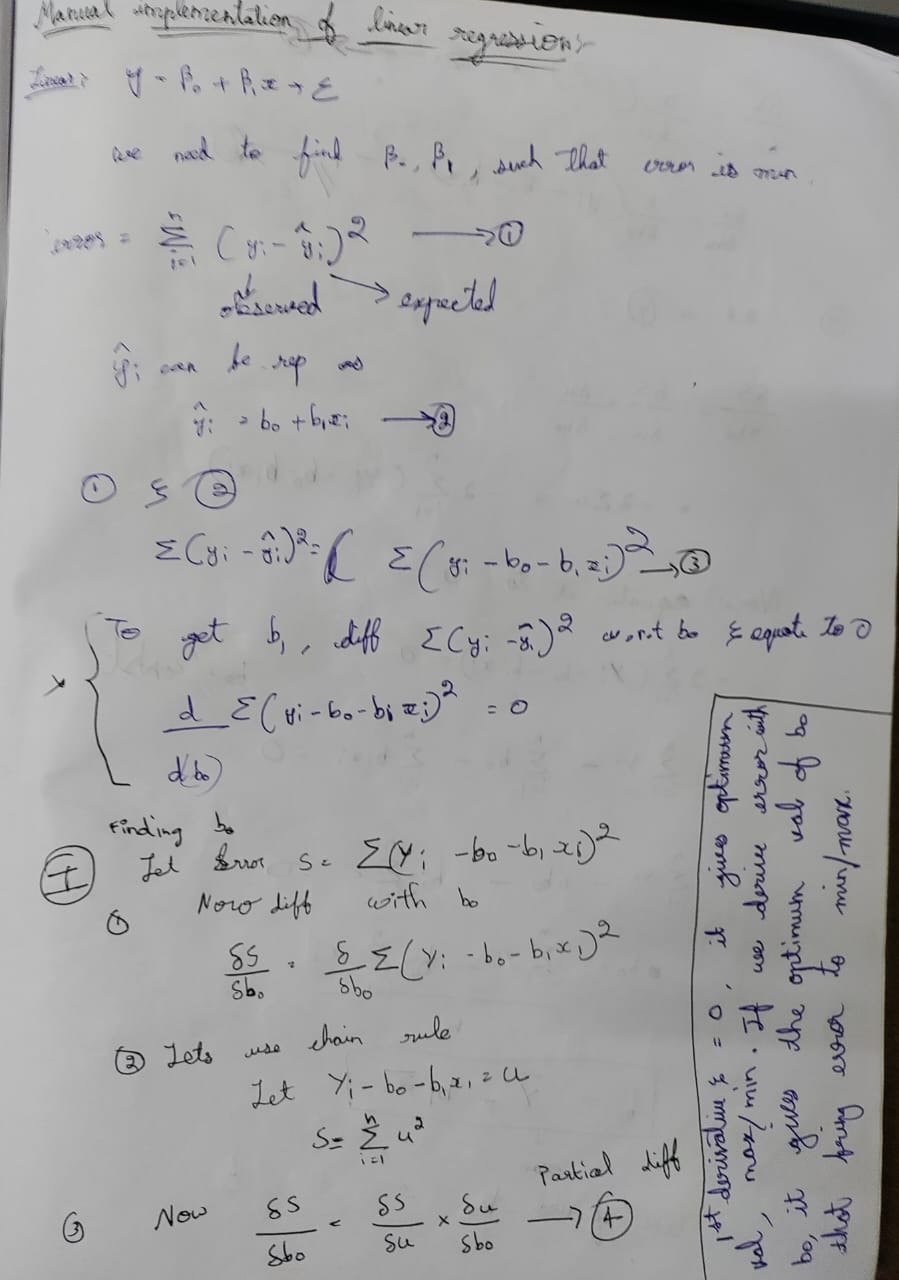 Manual implementation of linear regression:-
Linear: y = β₀ + β₁x + ε
we need to find β₀, β₁, such that error is min.
error = Σⁿᵢ₌₁ (yᵢ - ŷᵢ)² → ①
observed expected
ŷᵢ can be rep as
ŷᵢ = b₀ + b₁xᵢ → ②
① & ②
Σ(yᵢ - ŷᵢ)² = Σ(yᵢ - b₀ - b₁xᵢ)² → ③
x { To get b₁, diff Σ(yᵢ - ŷᵢ)² w.r.t b₀ & equate to 0
d/d(b₀) Σ(yᵢ - b₀ - b₁xᵢ)² = 0
Finding b₀
I Let Error S = Σ(Yᵢ - b₀ - b₁xᵢ)²
① Now diff with b₀
δS/δb₀ = δ/δb₀ Σ(Yᵢ - b₀ - b₁xᵢ)²
② Lets use chain rule
Let Yᵢ - b₀ - b₁xᵢ = u
S = Σⁿᵢ₌₁ u²
Partial diff
③ Now δS/δb₀ = δS/δu × δu/δb₀ → ④
1st derivative & = 0, it gives optimum
val, max/min. If we derive error with
b₀, it gives the optimum val of b₀
that bring error to min/max.